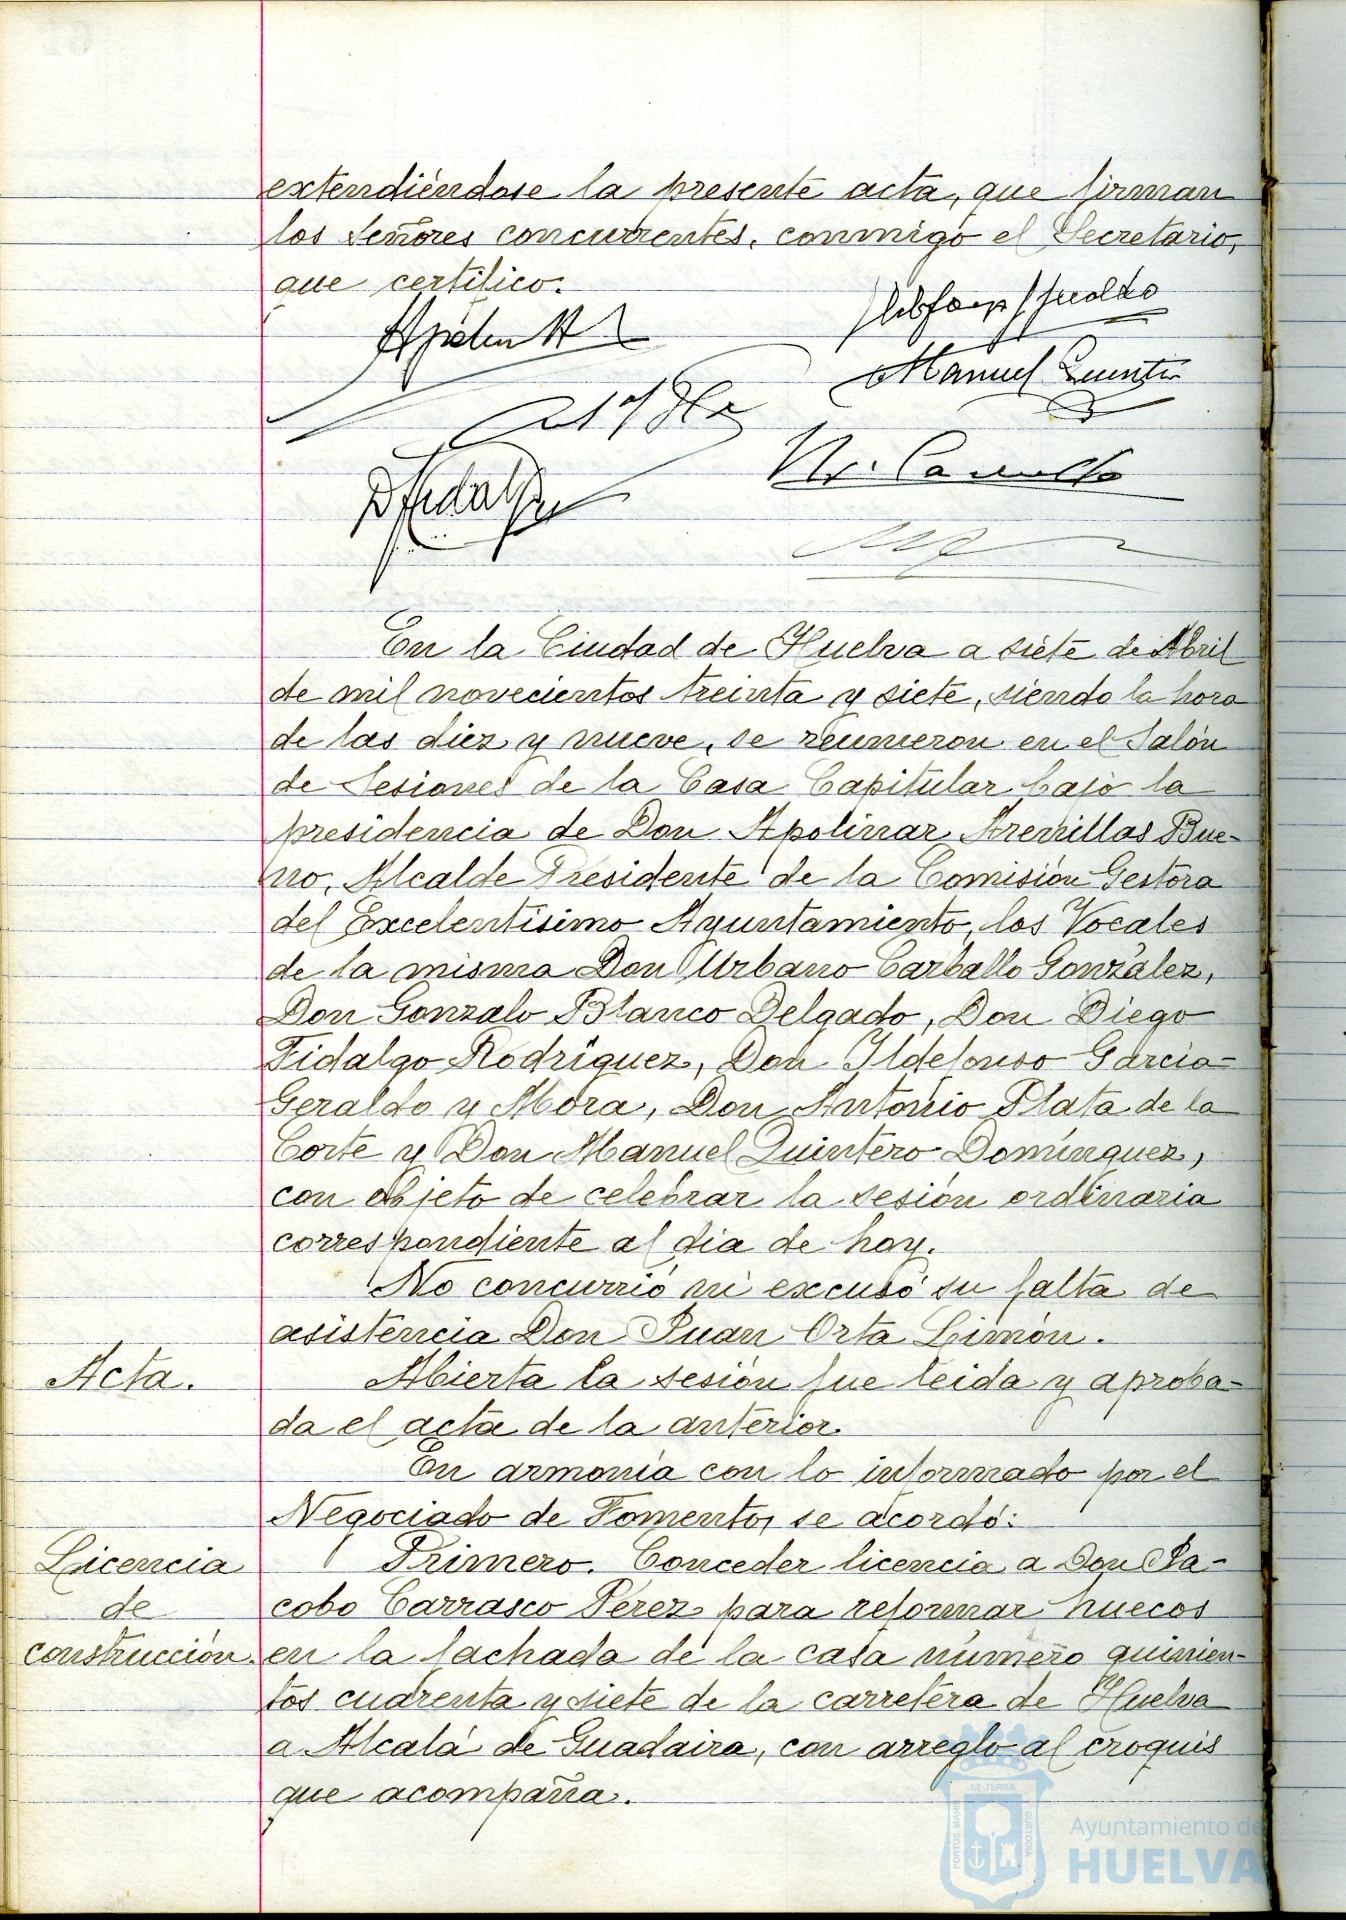 extendiéndose la presente acta, que firman
los Señores concurrentes, conmigo el Secretario,
que certifico.
Manuel Quintero
D Fidalgo
En la Ciudad de Huelva a siete de Abril
de mil novecientos treinta y siete, siendo la hora
de las diez y nueve, se reunieron en el Salón
de Sesiones de la Casa Capitular bajo la
presidencia de Don Apolinar Arenillas Bue-
no, Alcalde Presidente de la Comisión Gestora
del Excelentísimo Ayuntamiento, los Vocales
de la misma Don Urbano Carballo González,
Don Gonzalo Blanco Delgado, Don Diego
Fidalgo Rodríguez, Don Ildefonso Garcia-
Geraldo y Mora, Don Antonio Plata de la
Corte y Don Manuel Quintero Domínguez,
con objeto de celebrar la sesión ordinaria
correspondiente al dia de hoy.
No concurrió ni excusó su falta de
asistencia Don Juan Orta Limón.
Acta.
Abierta la sesión fue leida y aproba-
da el acta de la anterior.
En armonía con lo informado por el
Negociado de Fomento, se acordó:
Licencia
de
construcción.
Primero. Conceder licencia a Don Ja-
cobo Carrasco Pérez para reformar huecos
en la fachada de la casa número quinien-
tos cuarenta y siete de la carretera de Huelva
a Alcalá de Guadaira, con arreglo al croquis
que acompaña.
ET TERRÆ
PORTUS MARIS
CUSTODIA
Ayuntamiento de
HUELVA